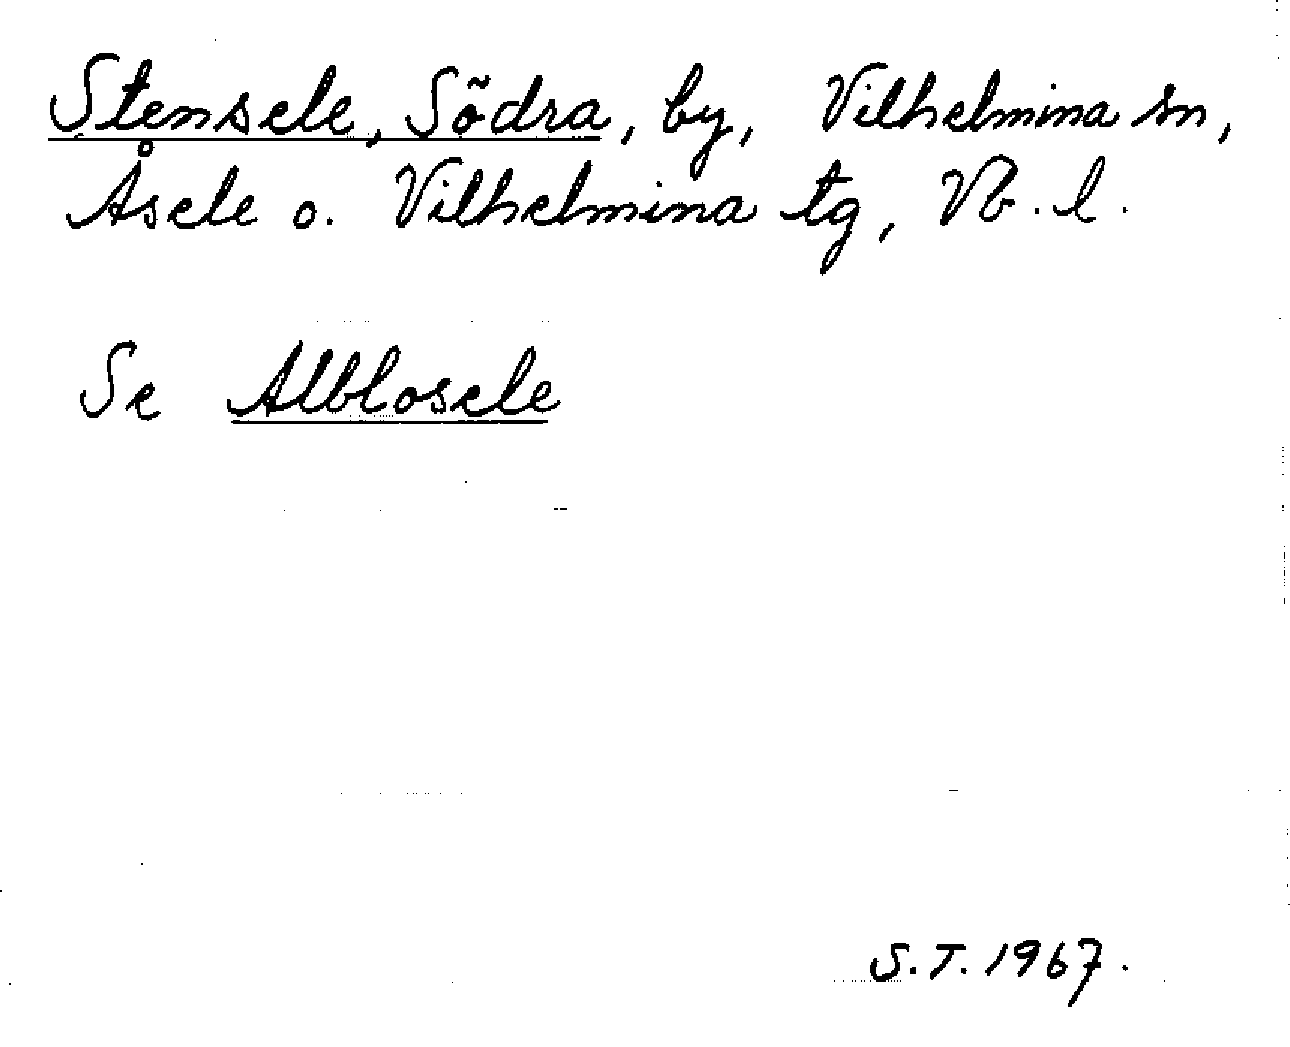 Stensele, Södra, by, Vilhelmina sn,
Åsele o. Vilhelmina tg, Vb. l.
Se Alblosele
S.T. 1967.